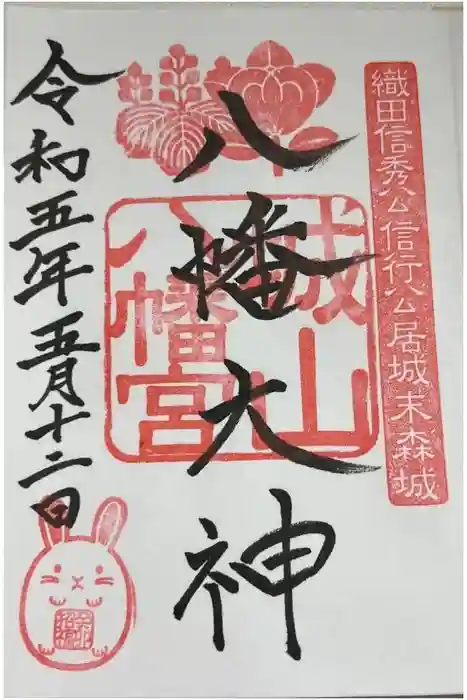 織田信秀公信行公居城末森城
八幡大神
城山
八幡宮
令和五年五月十二日